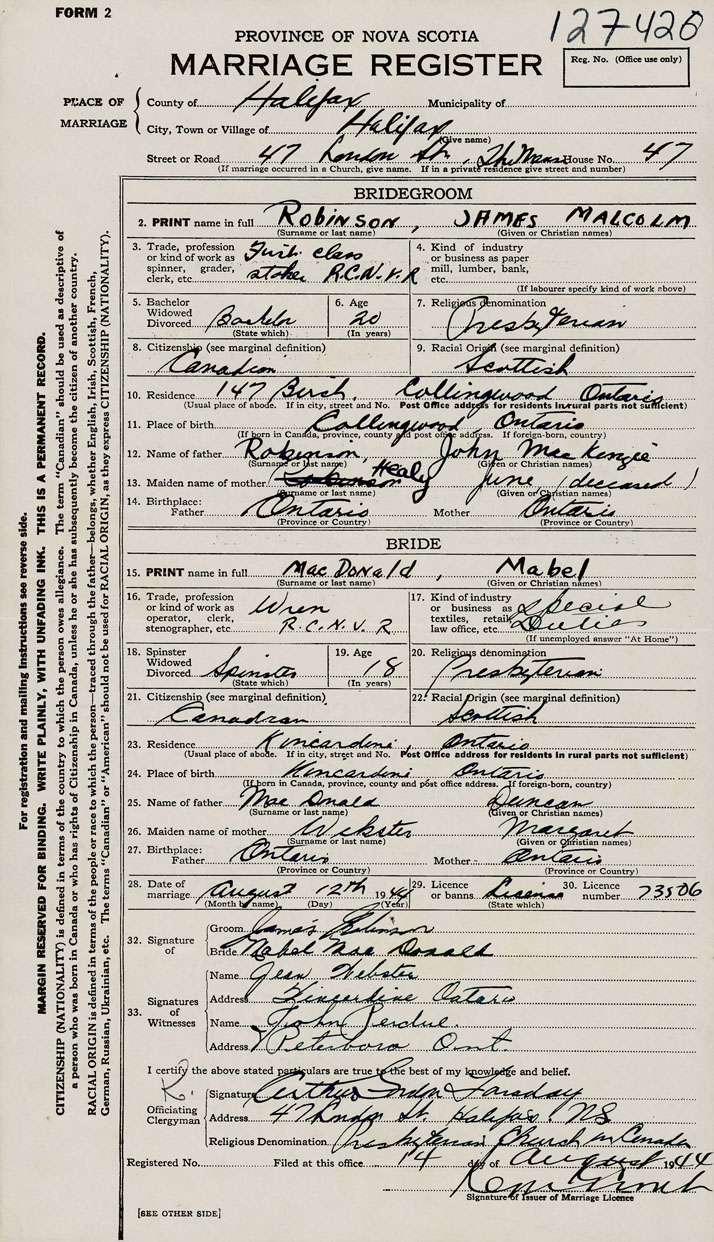 FORM 2
127426
PROVINCE OF NOVA SCOTIA
MARRIAGE REGISTER
Reg. No. (Office use only)
PLACE OF MARRIAGE
County of Halifax Municipality of
City, Town or Village of Halifax
(Give name)
Street or Road 47 London St., The Manse House No. 47
(If marriage occurred in a Church, give name. If in a private residence give street and number)
BRIDEGROOM
2. PRINT name in full ROBINSON, JAMES MALCOLM
(Surname or last name) (Given or Christian names)
3. Trade, profession or kind of work as spinner, grader, clerk, etc. First class stoker R.C.N.V.R
4. Kind of industry or business as paper mill, lumber, bank, etc.
(If labourer specify kind of work above)
5. Bachelor Widowed Divorced Bachelor
(State which)
6. Age 20
(In years)
7. Religious denomination Presbyterian
8. Citizenship (see marginal definition) Canadian
9. Racial Origin (see marginal definition) Scottish
10. Residence 147 Birch, Collingwood Ontario
(Usual place of abode. If in city, street and No. Post Office address for residents in rural parts not sufficient)
11. Place of birth Collingwood, Ontario
(If born in Canada, province, county and post office address. If foreign-born, country)
12. Name of father Robinson, John MacKenzie
(Surname or last name) (Given or Christian names)
13. Maiden name of mother Robinson Healy June (deceased)
(Surname or last name) (Given or Christian names)
14. Birthplace: Father Ontario Mother Ontario
(Province or Country) (Province or Country)
BRIDE
15. PRINT name in full MacDonald, Mabel
(Surname or last name) (Given or Christian names)
16. Trade, profession or kind of work as operator, clerk, stenographer, etc. Wren R.C.N.V.R.
17. Kind of industry or business as textiles, retail, law office, etc. Special Duties
(If unemployed answer "At Home")
18. Spinster Widowed Divorced Spinster
(State which)
19. Age 18
(In years)
20. Religious denomination Presbyterian
21. Citizenship (see marginal definition) Canadian
22. Racial Origin (see marginal definition) Scottish
23. Residence Kincardine, Ontario
(Usual place of abode. If in city, street and No. Post Office address for residents in rural parts not sufficient)
24. Place of birth Kincardine Ontario
(If born in Canada, province, county and post office address. If foreign-born, country)
25. Name of father MacDonald Duncan
(Surname or last name) (Given or Christian names)
26. Maiden name of mother Webster Margaret
(Surname or last name) (Given or Christian names)
27. Birthplace: Father Ontario Mother Ontario
(Province or Country) (Province or Country)
28. Date of marriage August 12th 1944
(Month by name) (Day) (Year)
29. Licence or banns License
(State which)
30. Licence number 73506
32. Signature of
Groom James Robinson
Bride Mabel MacDonald
33. Signatures of Witnesses
Name Jean Webster
Address Kincardine Ontario
Name John Perdue.
Address Peterboro Ont.
I certify the above stated particulars are true to the best of my knowledge and belief.
Officiating Clergyman
Signature Arthur Gordon Faraday
Address 47 London St. Halifax. NS
Religious Denomination Presbyterian Church in Canada
Registered No. Filed at this office 14 day of August 1944
Signature of Issuer of Marriage Licence
[SEE OTHER SIDE]
For registration and mailing instructions see reverse side.
MARGIN RESERVED FOR BINDING. WRITE PLAINLY, WITH UNFADING INK. THIS IS A PERMANENT RECORD.
CITIZENSHIP (NATIONALITY) is defined in terms of the country to which the person owes allegiance. The term "Canadian" should be used as descriptive of
a person who was born in Canada or who has rights of Citizenship in Canada, unless he or she has subsequently become the citizen of another country.
RACIAL ORIGIN is defined in terms of the people or race to which the person—traced through the father—belongs, whether English, Irish, Scottish, French,
German, Russian, Ukrainian, etc. The terms "Canadian" or "American" should not be used for RACIAL ORIGIN, as they express CITIZENSHIP (NATIONALITY).